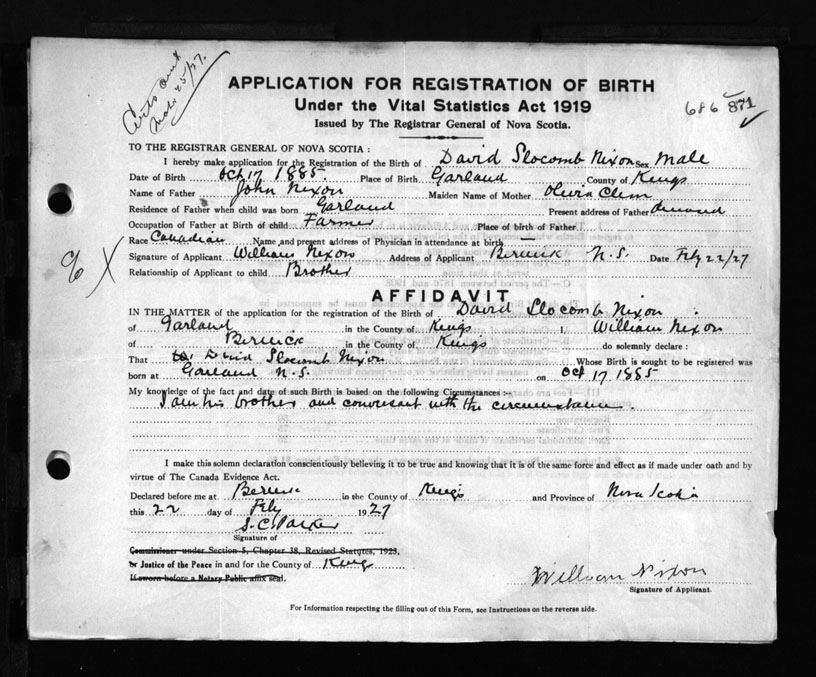 Certs sent
Mar 25/27.
APPLICATION FOR REGISTRATION OF BIRTH
Under the Vital Statistics Act 1919
Issued by The Registrar General of Nova Scotia.
686 871
TO THE REGISTRAR GENERAL OF NOVA SCOTIA :
I hereby make application for the Registration of the Birth of David Slocomb Nixon Sex Male
Date of Birth Oct 17 1885 Place of Birth Garland County of Kings
Name of Father John Nixon Maiden Name of Mother Olivia
Residence of Father when child was born Garland Present address of Father
Occupation of Father at Birth of child Farmer Place of birth of Father
Race Canadian Name and present address of Physician in attendance at birth —
Signature of Applicant William Nixon Address of Applicant Berwick N.S. Date Feby 22/27
Relationship of Applicant to child Brother
AFFIDAVIT
IN THE MATTER of the application for the registration of the Birth of David Slocomb Nixon
of Garland in the County of Kings I, William Nixon
of Berwick in the County of Kings do solemnly declare :
That David Slocomb Nixon Whose Birth is sought to be registered was
born at Garland N.S. on Oct 17 1885
My knowledge of the fact and date of such Birth is based on the following Circumstances :-
I am his brother and conversant with the circumstances.
I make this solemn declaration conscientiously believing it to be true and knowing that it is of the same force and effect as if made under oath and by
virtue of The Canada Evidence Act.
Declared before me at Berwick in the County of Kings and Province of Nova Scotia
this 22 day of Feby 1927
S. C. Parker
Signature of
Commissioner under Section 5, Chapter 38, Revised Statutes, 1923,
or Justice of the Peace in and for the County of Kings
If sworn before a Notary Public affix seal.
William Nixon
Signature of Applicant.
For Information respecting the filling out of this Form, see Instructions on the reverse side.